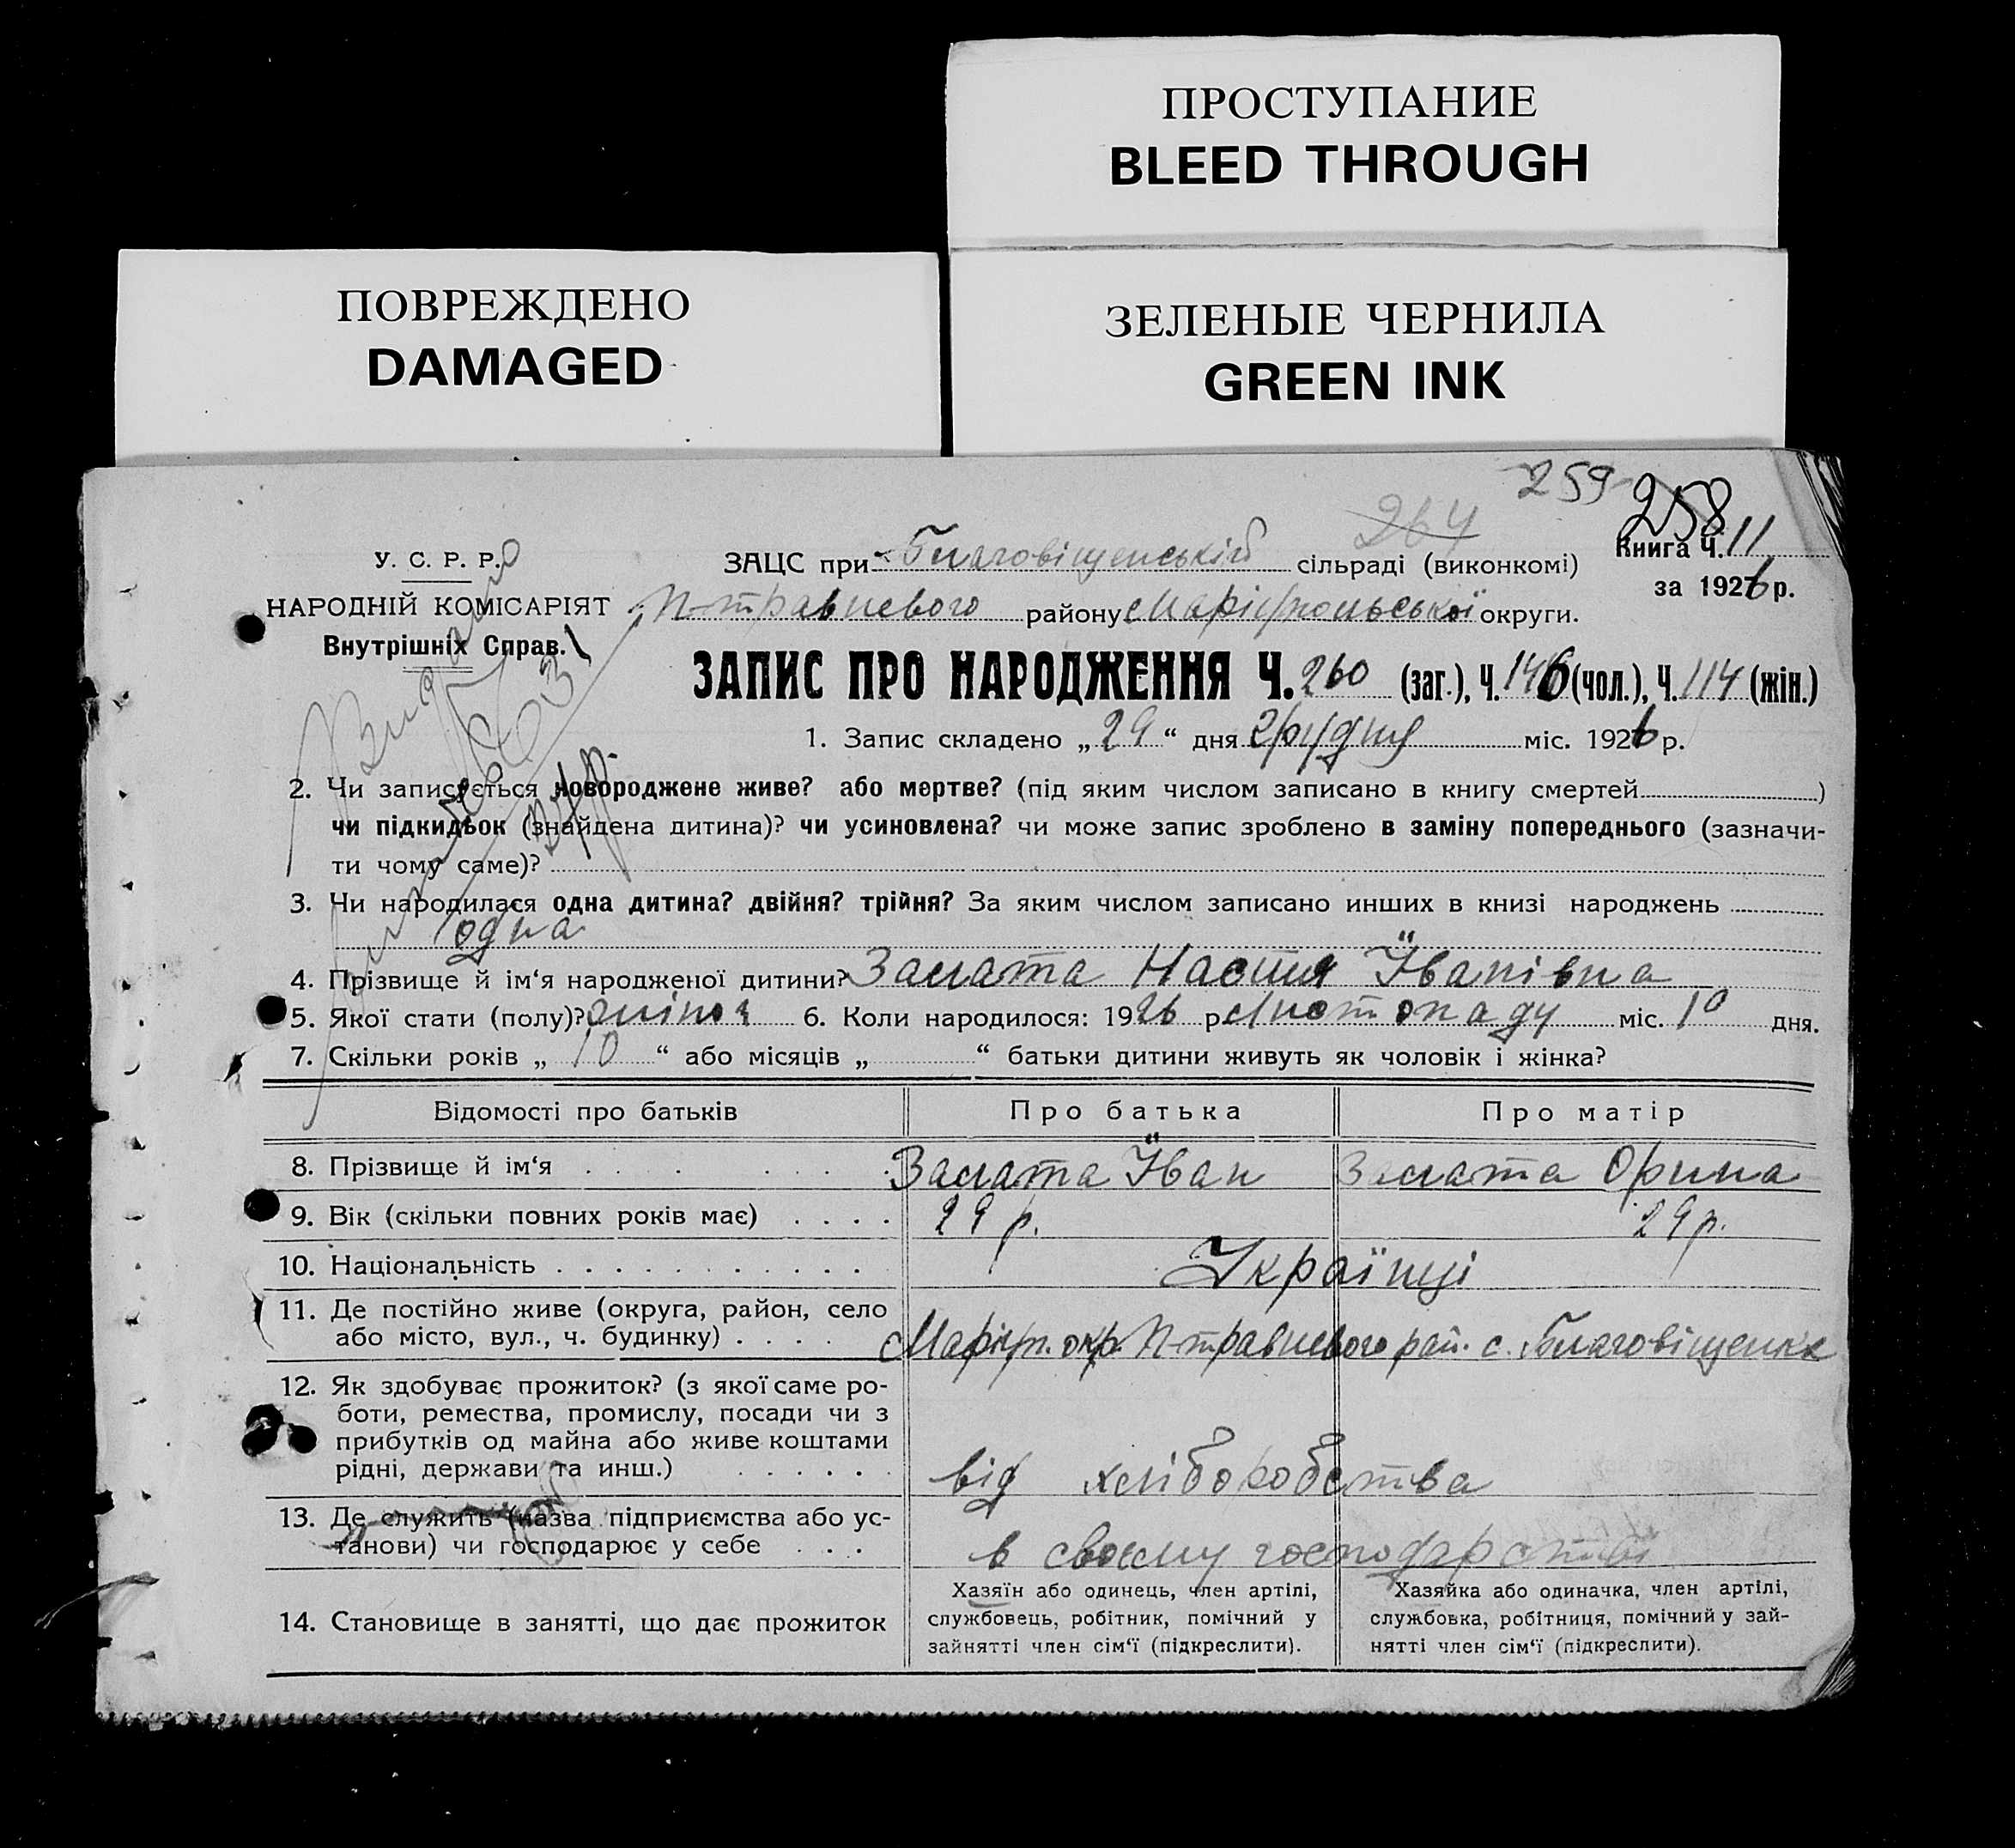 ПРОСТУПАНИЕ
BLEED THROUGH
ПОВРЕЖДЕНО
DAMAGED
ЗЕЛЕНЫЕ ЧЕРНИЛА
GREEN INK
259
258
264
У. С. Р. Р.
НАРОДНІЙ КОМІСАРІЯТ
Внутрішніх Справ.
Видано
ЗАЦС при Благовіщенській сільраді (виконкомі)
Книга Ч. 11
за 1926 р.
П-травневого району Маріюпольської округи.
ЗАПИС ПРО НАРОДЖЕННЯ Ч. 260 (заг.), Ч. 146 (чол.), Ч. 114 (жін.)
1. Запис складено „29“ дня грудня міс. 1926 р.
2. Чи записується новороджене живе? або мертве? (під яким числом записано в книгу смертей )
чи підкидьок (знайдена дитина)? чи усиновлена? чи може запис зроблено в заміну попереднього (зазначи-
ти чому саме)?
3. Чи народилася одна дитина? двійня? трійня? За яким числом записано инших в книзі народжень
одна
4. Прізвище й ім‘я народженої дитини? Залата Настя Їванівна
5. Якої стати (полу)? жіноч 6. Коли народилося: 1926 р Листопаду міс. 10 дня.
7. Скільки років „ 10 “ або місяців „ “ батьки дитини живуть як чоловік і жінка?
Відомості про батьків Про батька Про матір
8. Прізвище й ім‘я Залата Їван Залата Орина
9. Вік (скільки повних років має) 29 р. 29 р.
10. Національність Українці
11. Де постійно живе (округа, район, село
або місто, вул., ч. будинку) Маріюп. окр. П-травневого рай. с. Благовіщенка
12. Як здобуває прожиток? (з якої саме ро-
боти, ремества, промислу, посади чи з
прибутків од майна або живе коштами
рідні, держави та инш.) від хліборобства
13. Де служить (назва підприємства або ус-
танови) чи господарює у себе в своєму господарстві
14. Становище в занятті, що дає прожиток
Хазяїн або одинець, член артілі,
службовець, робітник, помічний у
зайнятті член сім‘ї (підкреслити).
Хазяйка або одиначка, член артілі,
службовка, робітниця, помічний у зай-
нятті член сім‘ї (підкреслити).